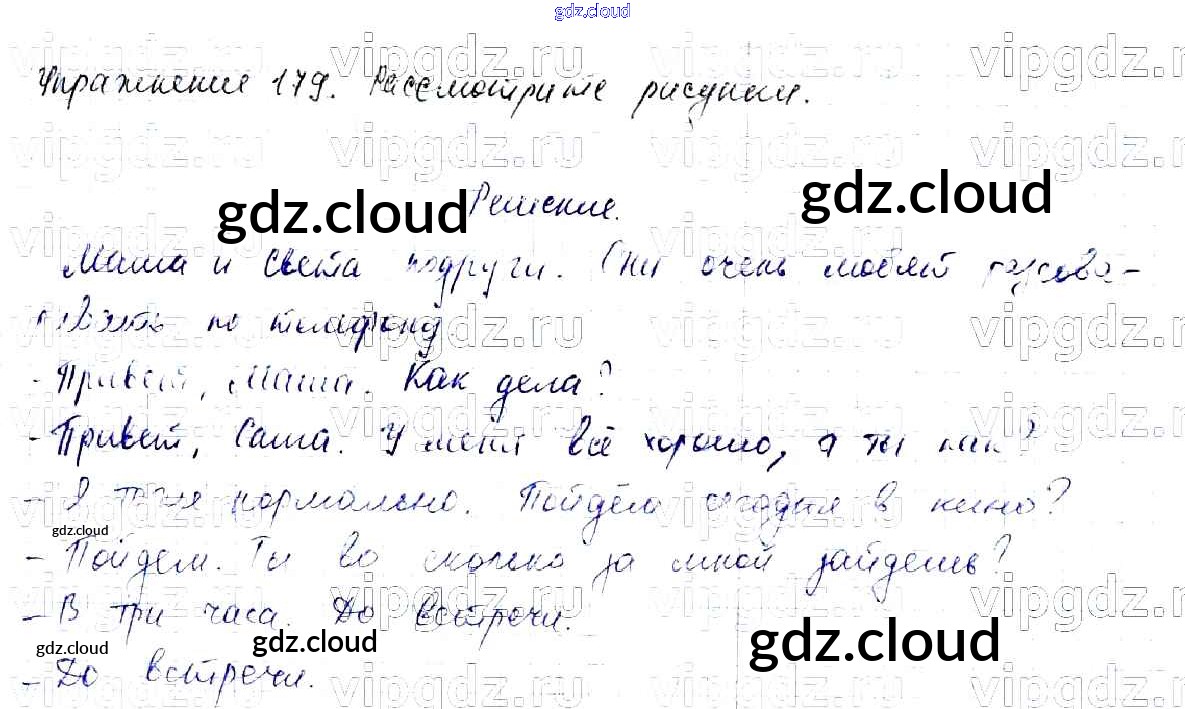 gdz.cloud
Упражнение 179. Рассмотрите рисунки.
Решение.
Маша и Света подруги. Они очень любят разгова-
ривать по телефону.
- Привет, Маша. Как дела?
- Привет, Саша. У меня всё хорошо, а ты как?
- Я тоже нормально. Пойдём сегодня в кино?
- Пойдем. Ты во сколько за мной зайдешь?
- В три часа. До встречи.
- До встречи.